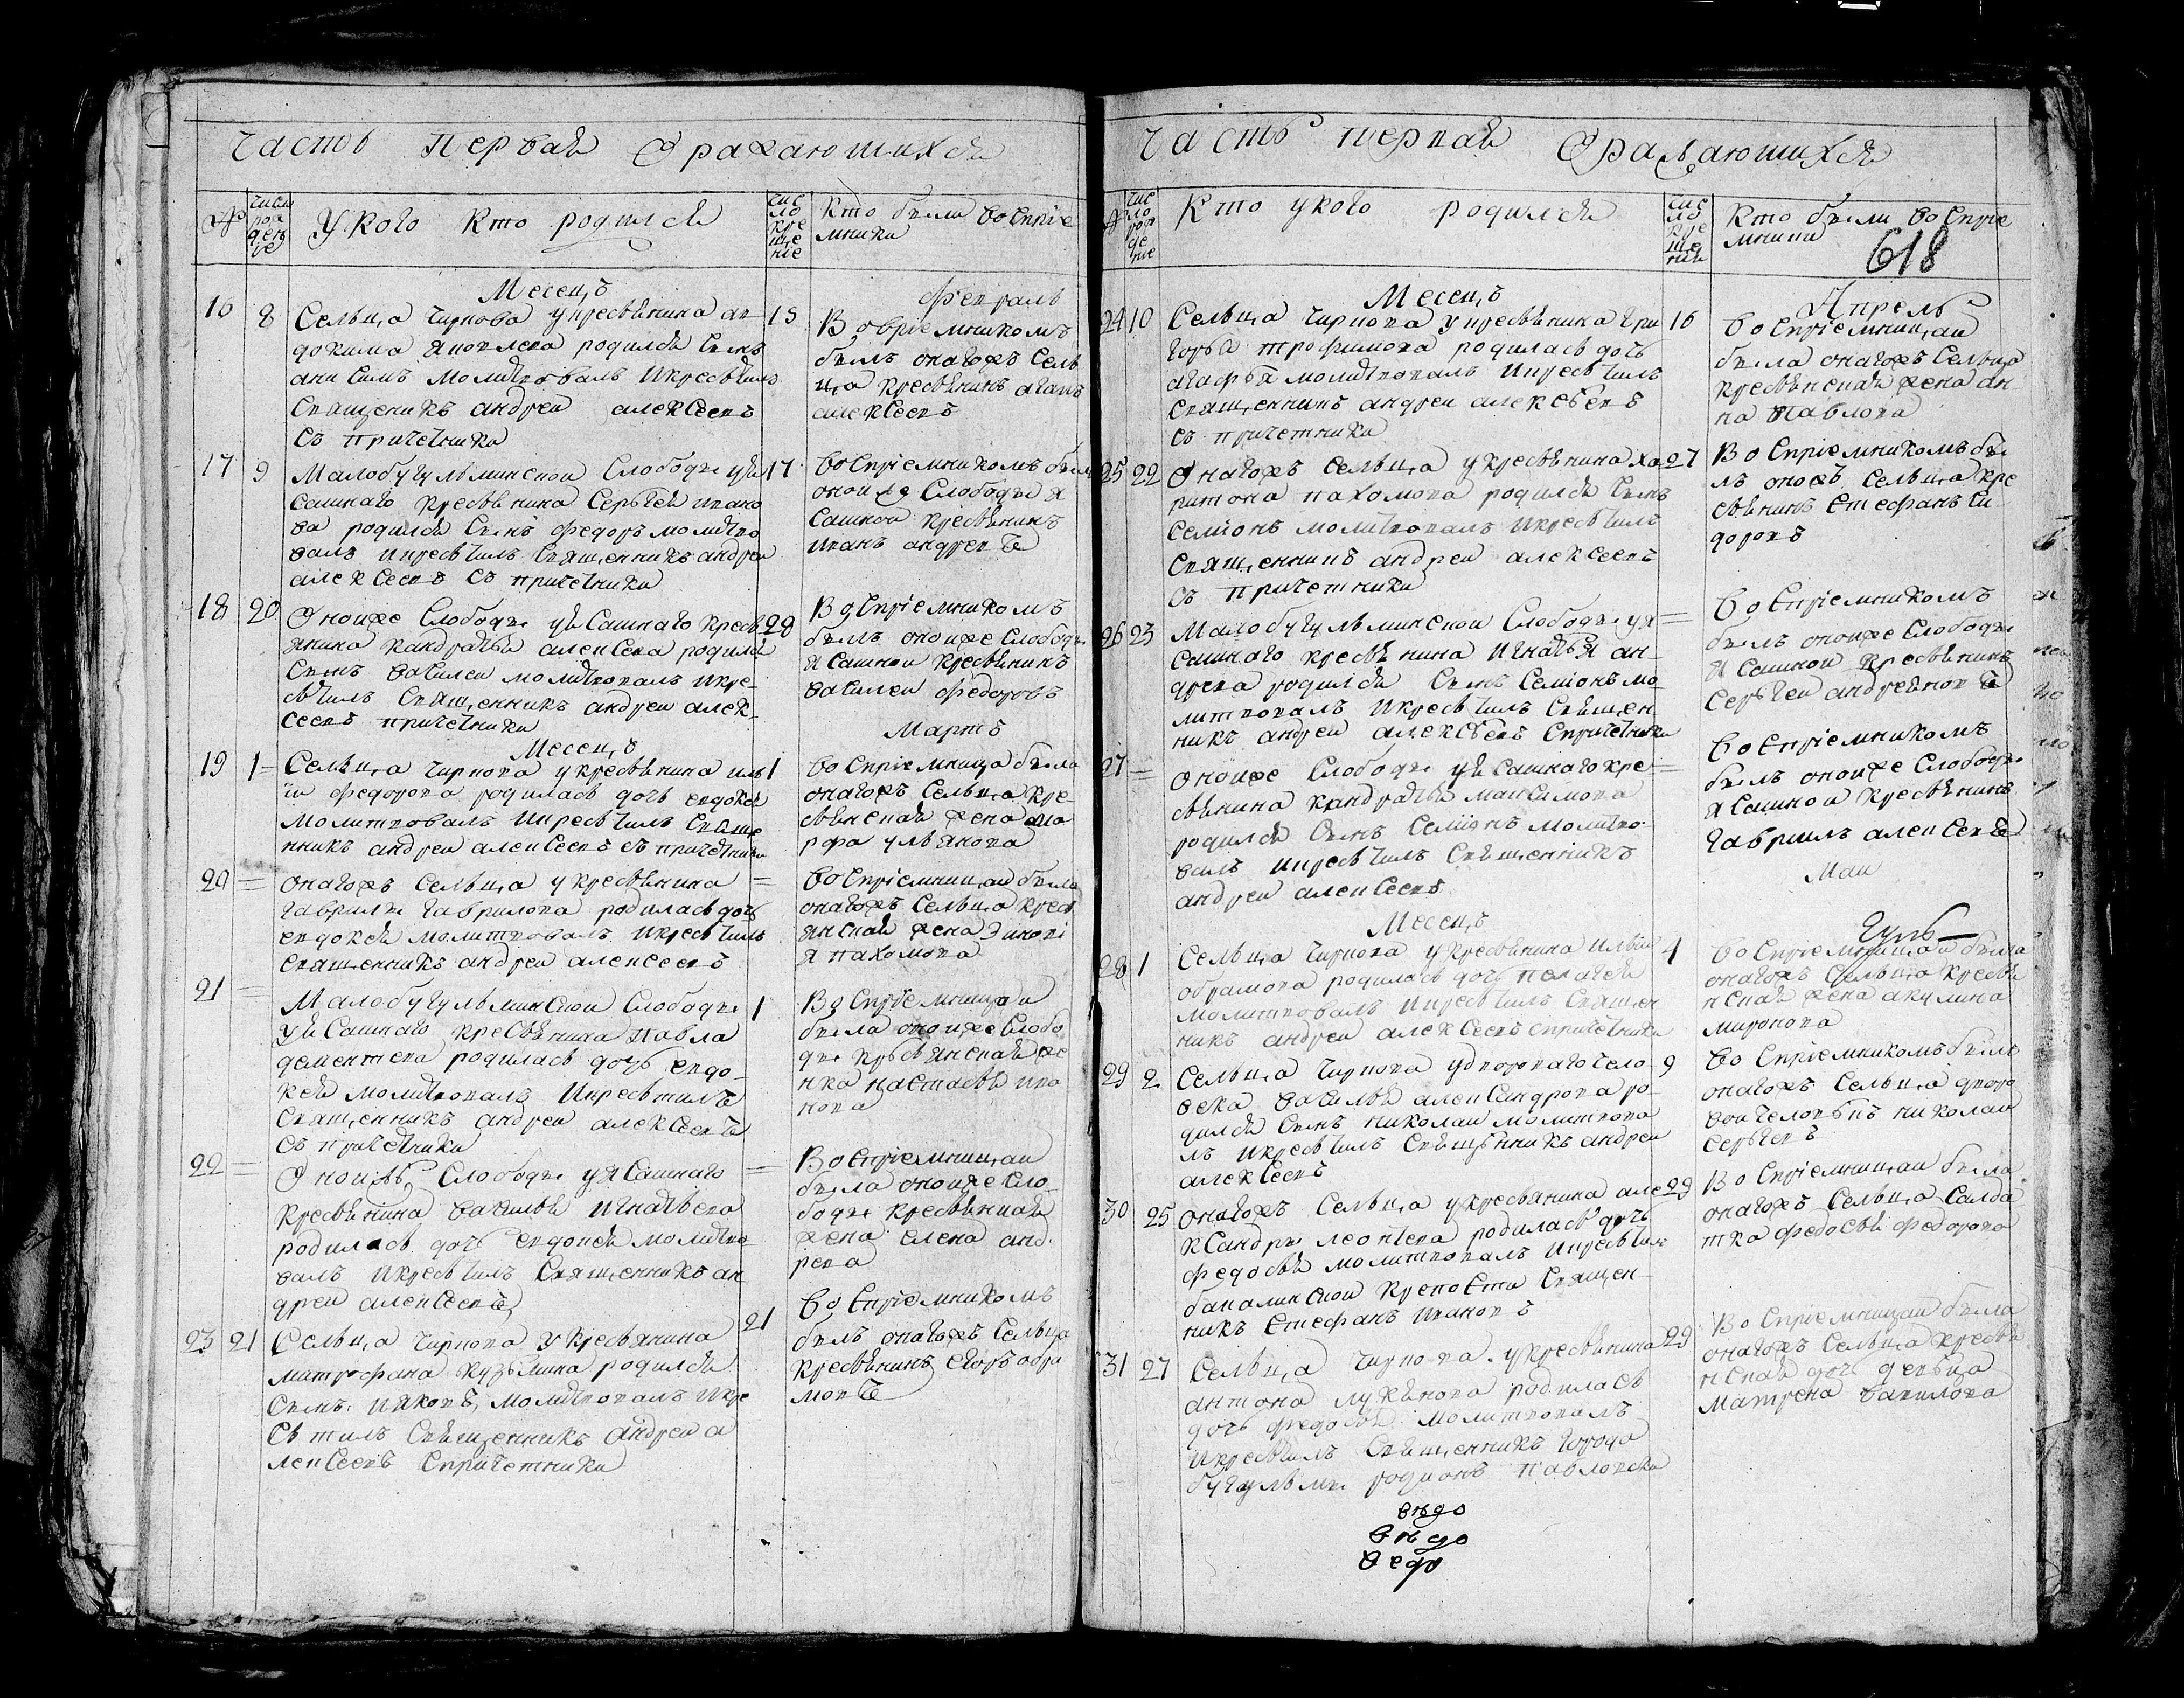 Часть первая о ражаюшихся
№
числ рож ден ие
У кого кто родился
чис ло кре ще ние
Кто были воспрiе
мники
Месецъ Февраль
16 8 Сельца чиркова укресьянина ев
докима яковлева родился сынъ
ани симъ молитвовалъ икресьтилъ
священикъ андреи алексеевъ
съ причетники
15 Воспрiемникомъ
былъ онагожъ сель
ца кресьянинъ агапъ
алексеевъ
17 9 Малобугульминской слободы уя
сашнаго кресьянина сергея ивано
ва родился сынъ федоръ молитво
валъ икресьтилъ священникъ андреи
алексеевъ съ причетники
17 воспрiемникомъ былъ
оной же слободы я
сашной кресьянинъ
иванъ андреевъ
18 20 Онойже слободы уясашнаго кресь
янина кандратья алексева родилс
сынъ василеи молитвовалъ икре
сьтилъ священникъ андреи алек
сеевъ причетники
28 Воспрiемникомъ
былъ онойже слободы
ясашной кресьянинъ
василеи федоровъ
Месецъ Мартъ
19 1 Сельца чиркова укресьянина иль
и федорова родилась дочь евдокея
молитвовалъ икресьтилъ свяще
нникъ андреи алексеевъ съ причетники
1 воспрiемница была
онагожъ сельца кре
сьянская жена ма
рфа ульянова
20 = онагожъ сельца укресьянина
гаврилы гаврилова родилась дочь
евдокея молитвовалъ икресьтилъ
священникъ андреи алексеевъ
= воспрiемницаи была
онагожъ сельца кресь
янская жена зиновi
я пахомова
21 = Малобугульминской слободы
уясашнаго кресьянина павла
дементева родилась дочь евдо
кея молитвовалъ икресьтилъ
священникъ андреи алексеевъ
съ причетники
1 Воспрiемницаи
была онойже слобо
ды кресьянская же
нка настасья ива
нова
22 = Онойже слободы уясашнаго
кресьянина василья игнатьева
родилась дочь евдокея молитво
валъ икресьтилъ священникъ ан
дреи алексеевъ
= Воспрiемницаи
была онойже сло
боды кресьянская
жена елена анд
реева
23 21 Сельца чиркова укресьянина
митрофана кузьмина родился
сынъ иаковъ молитвовалъ икре
сьтилъ священникъ андреи а
лексеевъ спричетники
21 воспрiемникомъ
былъ онагожъ сельца
кресьянинъ егоръ обра
мовъ
Часть первая Оражаюшихся
№
чис ло рож де ние
Кто укого родился
чис ло кре ще ния
Кто были воспрiе
мники
618
Месецъ Апрель
24 10 Сельца чиркова укресьянина гри
горья трофимова родилась дочь
агафья молитвовалъ икресьтилъ
священникъ андреи алексеевъ
съ причетники
16 воспрiемницаи
была онагожъ сельца
кресьянская жена ан
на павлова
25 22 Онагожъ сельца укресьянина ха
ритона пахомова родился сынъ
семiонъ молитвовалъ икресьтилъ
священникъ андреи алексеевъ
съ причетники
27 Воспрiемникомъ бы
лъ оножъ сельца кре
сьянинъ стефанъ си
доровъ
26 23 Малобугульминской слободы уя
сашнаго кресьянина игнатья ан
дреева родился сынъ семiонъ мо
литвовалъ икресьтилъ священ
никъ андреи алексеевъ спричетники
= воспрiемникомъ
былъ онойже слободы
ясашной кресьянинъ
сергеи андреяновъ
27 = онойже слободы уясашнаго кре
сьянина кандратья максимова
родился сынъ семiонъ молитво
валъ икресьтилъ священникъ
андреи алексеевъ
= воспрiемникомъ
былъ онойже слободы
ясашной кресьянинъ
гаврилъ алексеевъ
Месецъ Маи
28 1 Сельца чиркова укресьянина ильи
обрамова родилась дочь пелагея
молитвовалъ икресьтилъ священ
никъ андреи алексеевъ спричетники
4 воспрiемницаи была
онагожъ сельца кресья
нская жена акулина
миронова
29 2 Сельца чиркова удворовагочело
века василья алексндрова ро
дился сынъ николаи молитвова
лъ икресьтилъ священникъ андреи
алексеевъ
9 Воспрiемникомъ былъ
онагожъ сельца дворо
вои человекъ николаи
сергеевъ
30 25 онагожъ сельца укресьянина але
ксандры леонтева родилась дочь
федосья молитвовалъ икресьтилъ
бакалинской крепости священ
никъ стефанъ ивановъ
29 Воспрiемницаи была
онагожъ сельца салда
тка федосья федорова
31 27 Сельца чиркова укресьянина
антона лукьянова родилась
дочь федосья молитвовалъ
икресьтилъ священникъ города
бугульмы родионъ павловски
29 Воспрiемницаи была
онагожъ сельца кресья
нская дочь девица
матрена вавилова